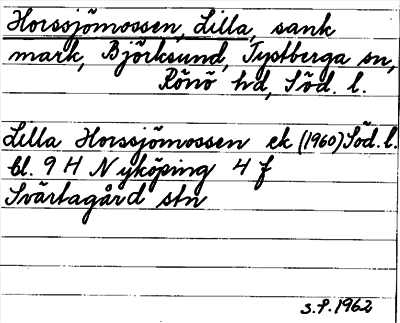 Horssjömossen, Lilla, sank
mark, Björksund, Tystberga sn,
Rönö hd, Söd. l.
Lilla Horssjömossen ek (1960) Söd. l.
bl. 9 H Nyköping 4 f
Svärtagård stn
S.P. 1962